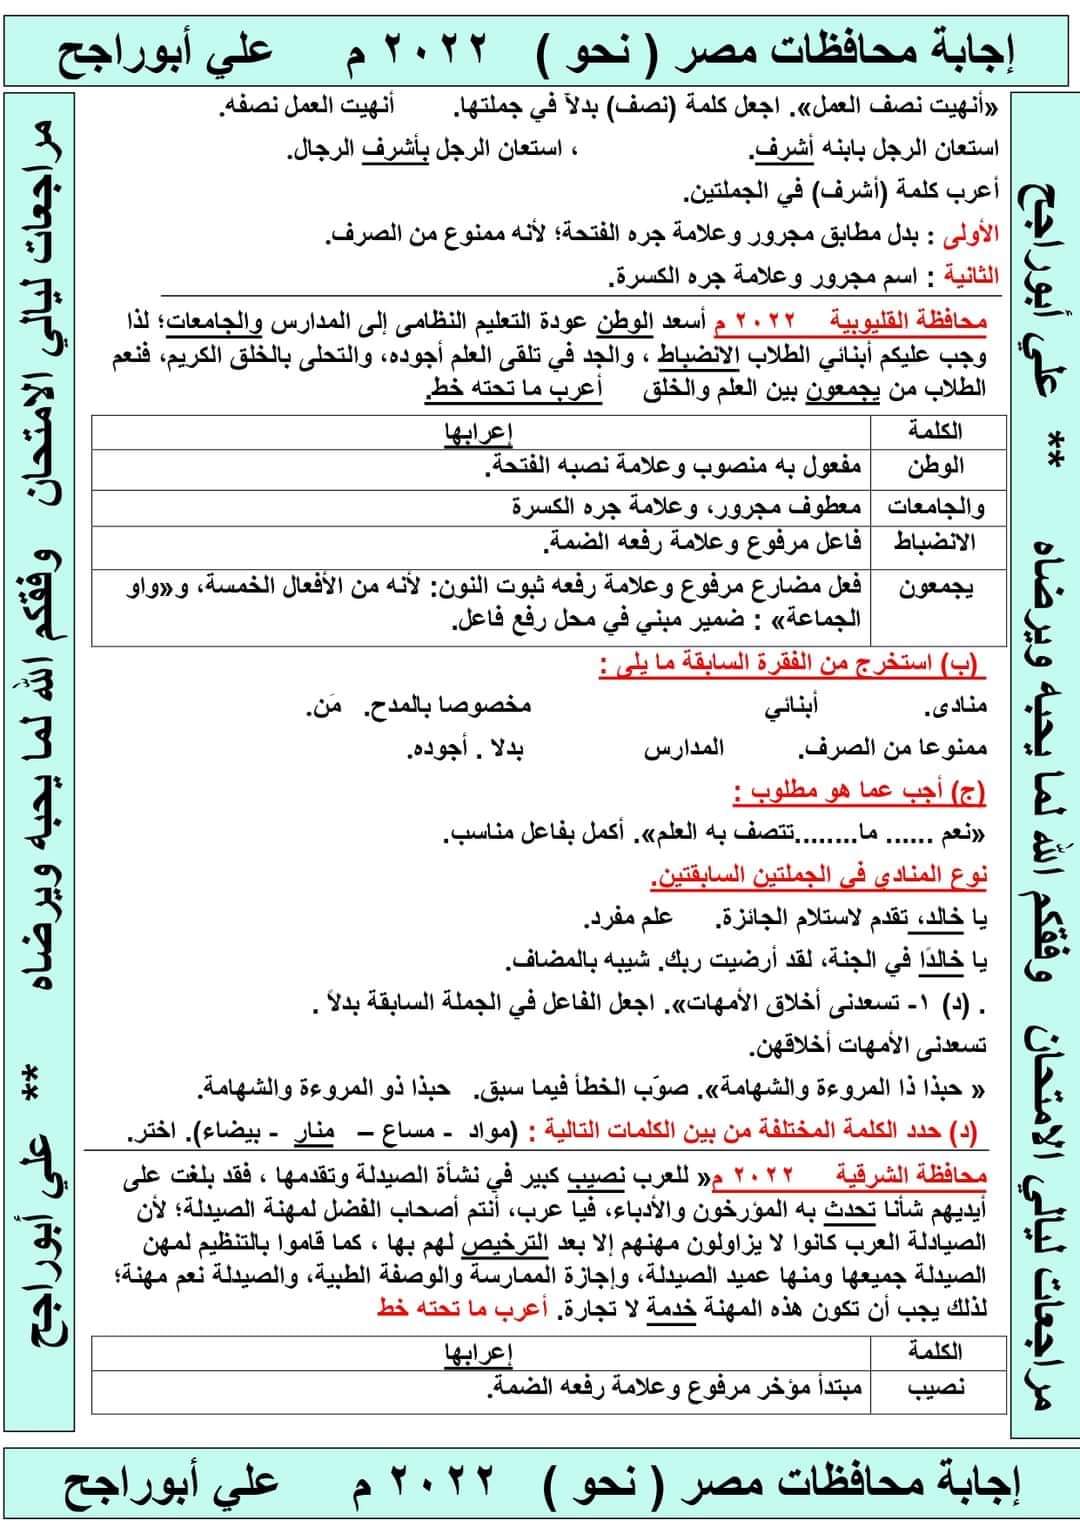 إجابة محافظات مصر ( نحو ) ٢٠٢٢ م علي أبوراجح
«أنهيت نصف العمل». اجعل كلمة (نصف) بدلاً في جملتها. أنهيت العمل نصفه.
استعان الرجل بابنه أشرف. ، استعان الرجل بأشرف الرجال.
أعرب كلمة (أشرف) في الجملتين.
الأولى : بدل مطابق مجرور وعلامة جره الفتحة؛ لأنه ممنوع من الصرف.
الثانية : اسم مجرور وعلامة جره الكسرة.
محافظة القليوبية ٢٠٢٢ م أسعد الوطن عودة التعليم النظامى إلى المدارس والجامعات؛ لذا
وجب عليكم أبنائي الطلاب الانضباط ، والجد في تلقى العلم أجوده، والتحلى بالخلق الكريم، فنعم
الطلاب من يجمعون بين العلم والخلق أعرب ما تحته خط.
الكلمة إعرابها
الوطن مفعول به منصوب وعلامة نصبه الفتحة.
والجامعات معطوف مجرور، وعلامة جره الكسرة
الانضباط فاعل مرفوع وعلامة رفعه الضمة.
يجمعون فعل مضارع مرفوع وعلامة رفعه ثبوت النون: لأنه من الأفعال الخمسة، و«واو
الجماعة» : ضمير مبني في محل رفع فاعل.
(ب) استخرج من الفقرة السابقة ما يلي :
منادى. أبنائي مخصوصا بالمدح. مَن.
ممنوعا من الصرف. المدارس بدلا . أجوده.
(ج) أجب عما هو مطلوب :
«نعم ...... ما........تتصف به العلم». أكمل بفاعل مناسب.
نوع المنادي في الجملتين السابقتين.
يا خالد، تقدم لاستلام الجائزة. علم مفرد.
يا خالدًا في الجنة، لقد أرضيت ربك. شبيه بالمضاف.
. (د) ١- تسعدنى أخلاق الأمهات». اجعل الفاعل في الجملة السابقة بدلاً .
تسعدنى الأمهات أخلاقهن.
« حبذا ذا المروءة والشهامة». صوّب الخطأ فيما سبق. حبذا ذو المروءة والشهامة.
(د) حدد الكلمة المختلفة من بين الكلمات التالية : (مواد - مساع – منار - بيضاء). اختر.
محافظة الشرقية ٢٠٢٢ م» للعرب نصيب كبير في نشأة الصيدلة وتقدمها ، فقد بلغت على
أيديهم شأنا تحدث به المؤرخون والأدباء، فيا عرب، أنتم أصحاب الفضل لمهنة الصيدلة؛ لأن
الصيادلة العرب كانوا لا يزاولون مهنهم إلا بعد الترخيص لهم بها ، كما قاموا بالتنظيم لمهن
الصيدلة جميعها ومنها عميد الصيدلة، وإجازة الممارسة والوصفة الطبية، والصيدلة نعم مهنة؛
لذلك يجب أن تكون هذه المهنة خدمة لا تجارة. أعرب ما تحته خط
الكلمة إعرابها
نصيب مبتدأ مؤخر مرفوع وعلامة رفعه الضمة.
إجابة محافظات مصر ( نحو ) ٢٠٢٢ م علي أبوراجح
مراجعات ليالي الامتحان وفقكم الله لما يحبه ويرضاه ** علي أبوراجح
مراجعات ليالي الامتحان وفقكم الله لما يحبه ويرضاه ** علي أبوراجح